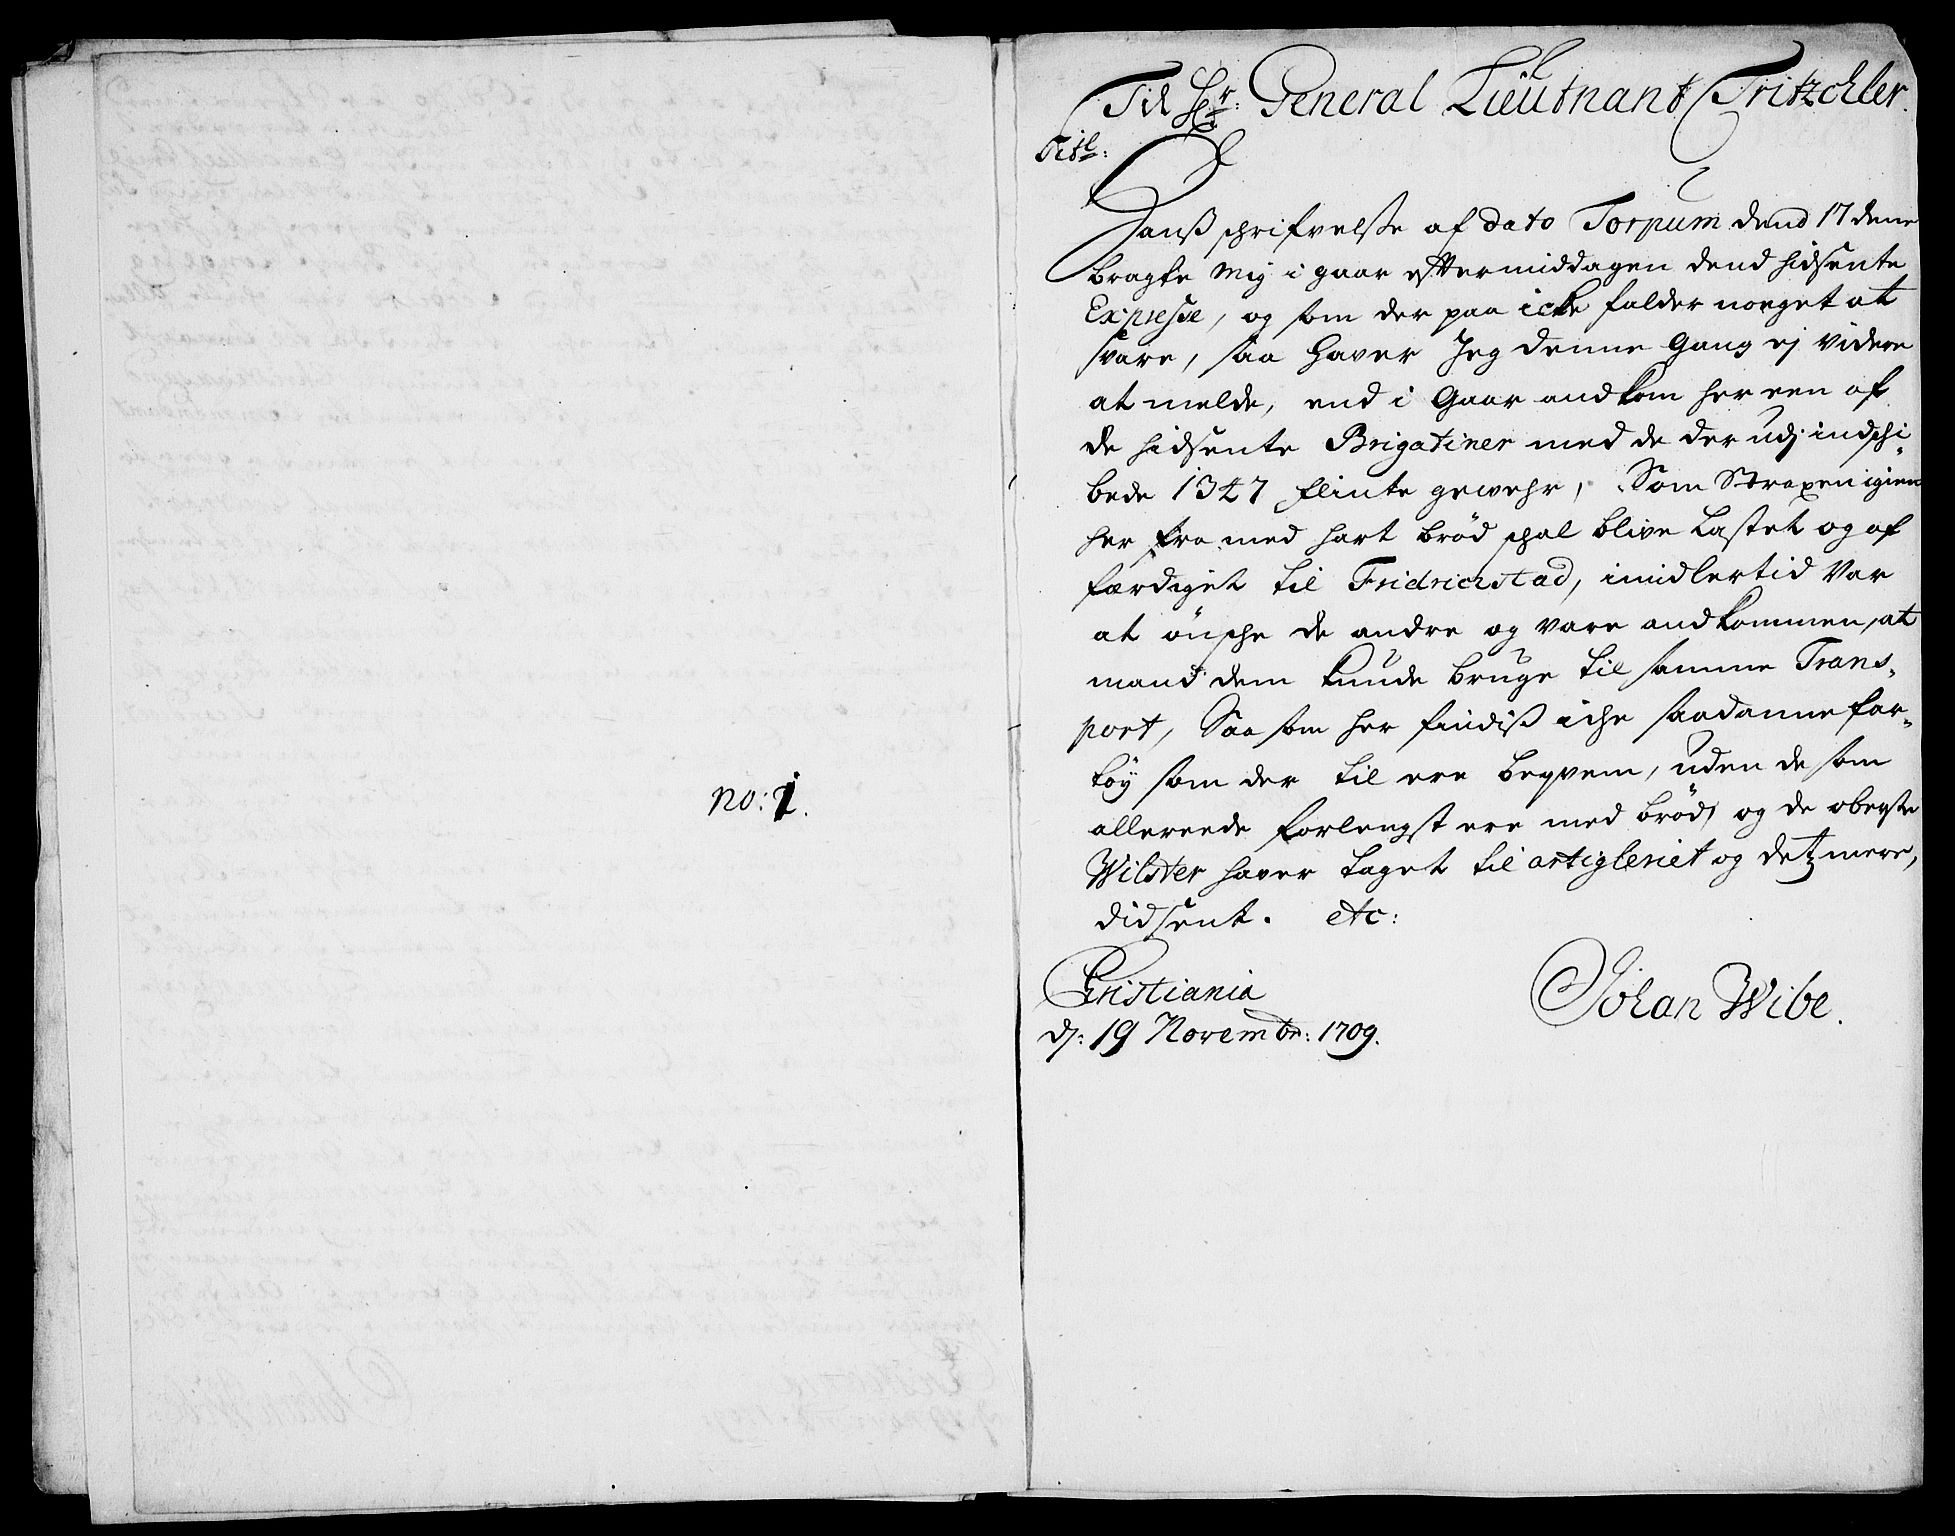 no: 1.
Til Hr: General Lieutnant Tritzchler.
Titl:
Hanß schrifvelße af dato Torpum dend 17 dene
bragte mig i gaar eftermiddagen dend hidsente
Expresse, og som der paa icke falder noeget at
svare, saa haver Jeg denne gang ej videre
at melde, end i Gaar andkom her een af
de hidsente Brigatiner med de der udj indschi-
bede 1347 flinte gewehr, Som Straxen igien
her fra med hart brød schal blive Lastet og af
færdiget til Fridrichstad, imidlertid Var
at önsche de andre og vare andkommen, at
mand dem kunde bruge til samme Trans-
port, Saa som her findiß iche saadanne far-
tøy som der til ere beqvem, uden de som
allereede forlengst ere med brød og de oberste
Wilster haver taget til artigleriet og detz mere,
didsent. etc:
Christiania
dj: 19 Novembr: 1709.
Johan Wibe.